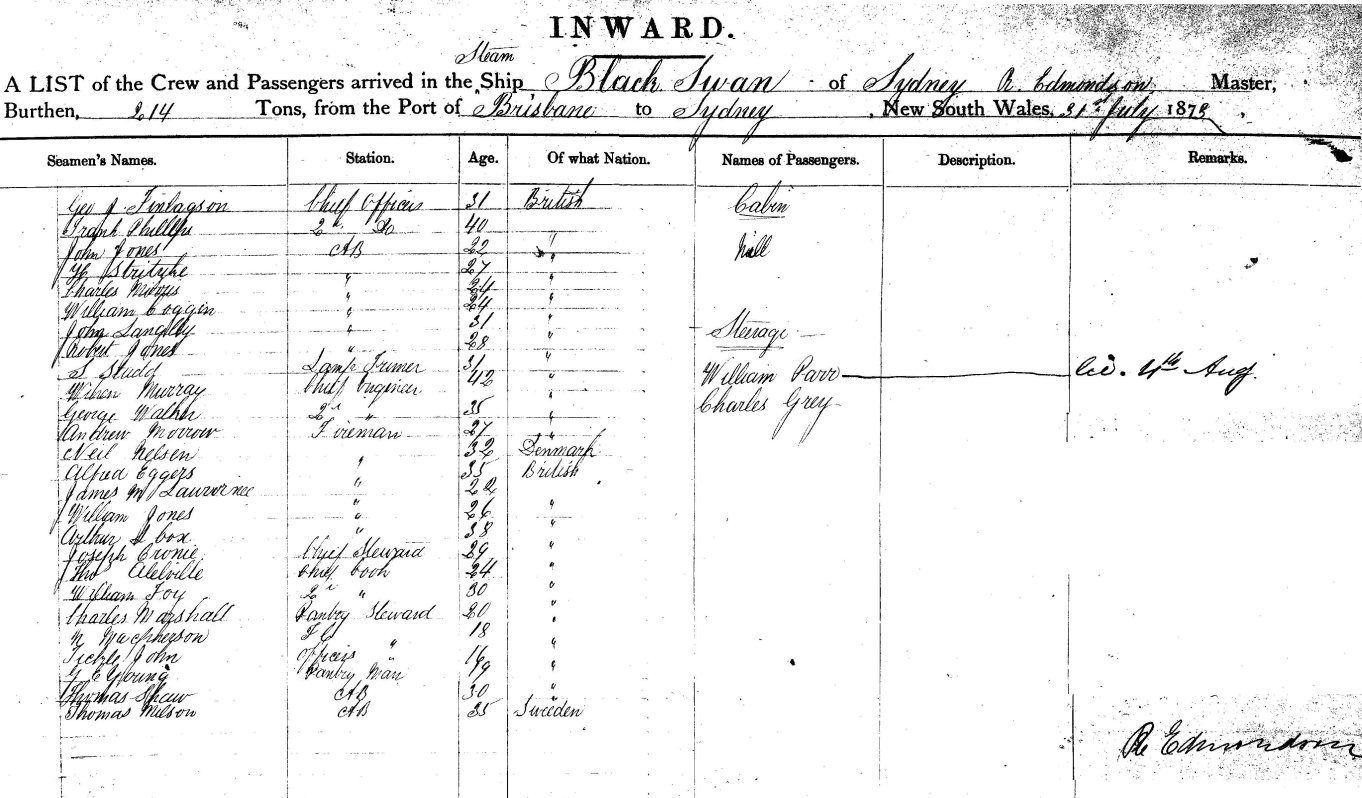 INWARD.
Steam
A LIST of the Crew and Passengers arrived in the Ship Black Swan of Sydney R Edmondson Master,
Burthen, 214 Tons, from the Port of Brisbane to Sydney, New South Wales, 31st July 1879
Seamen's Names. Station. Age. Of what Nation. Names of Passengers. Description. Remarks.
Geo J Finlayson Chief Officer 31 British Cabin
Frank Phillips 2nd Do 40 "
John Jones AB 22 " Nill
27 "
Charles " 24 "
William Coggin " 24 "
John Langley " 31 " Steerage
Robert Jones " 28 "
S Studd Lamp Trimer 31 " William Parr 4th Aug.
Murray Chief Engineer 42 " Charles Grey
George Walker 2nd " 35 "
Andrew Morrow Fireman 27 "
Neil Nelsen " 32 Denmark
Alfred Eggers " 35 British
James " 22
William Jones " 26 "
Arthur Cox " 38 "
Joseph Cronie Chief Steward 29 "
Tho Chief Cook 24 "
William Foy 2nd " 30 "
Charles Marshall Pantry Steward 20 "
N Macpherson 18 "
John Officers " 16 "
G E Young Pantry Man 19 "
Thomas Shaw AB 30 "
Thomas Nelson AB 35 Sweden
R Edmondson